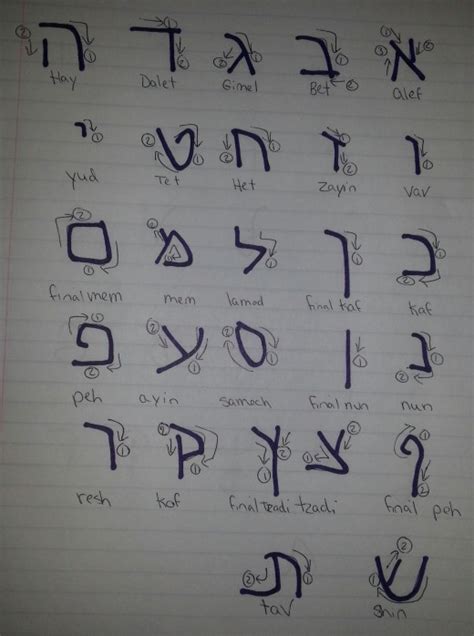 א ב ג ד ה
Hay Dalet Gimel Bet alef
ו ז ח ט י
yud Tet Het Zayin vav
כ ך ל מ ם
final mem mem lamed final kaf kaf
נ ן ס ע פ
peh ayin samech final nun nun
ף צ ץ ק ר
resh kof final tzadi tzadi final peh
ש ת
tav shin